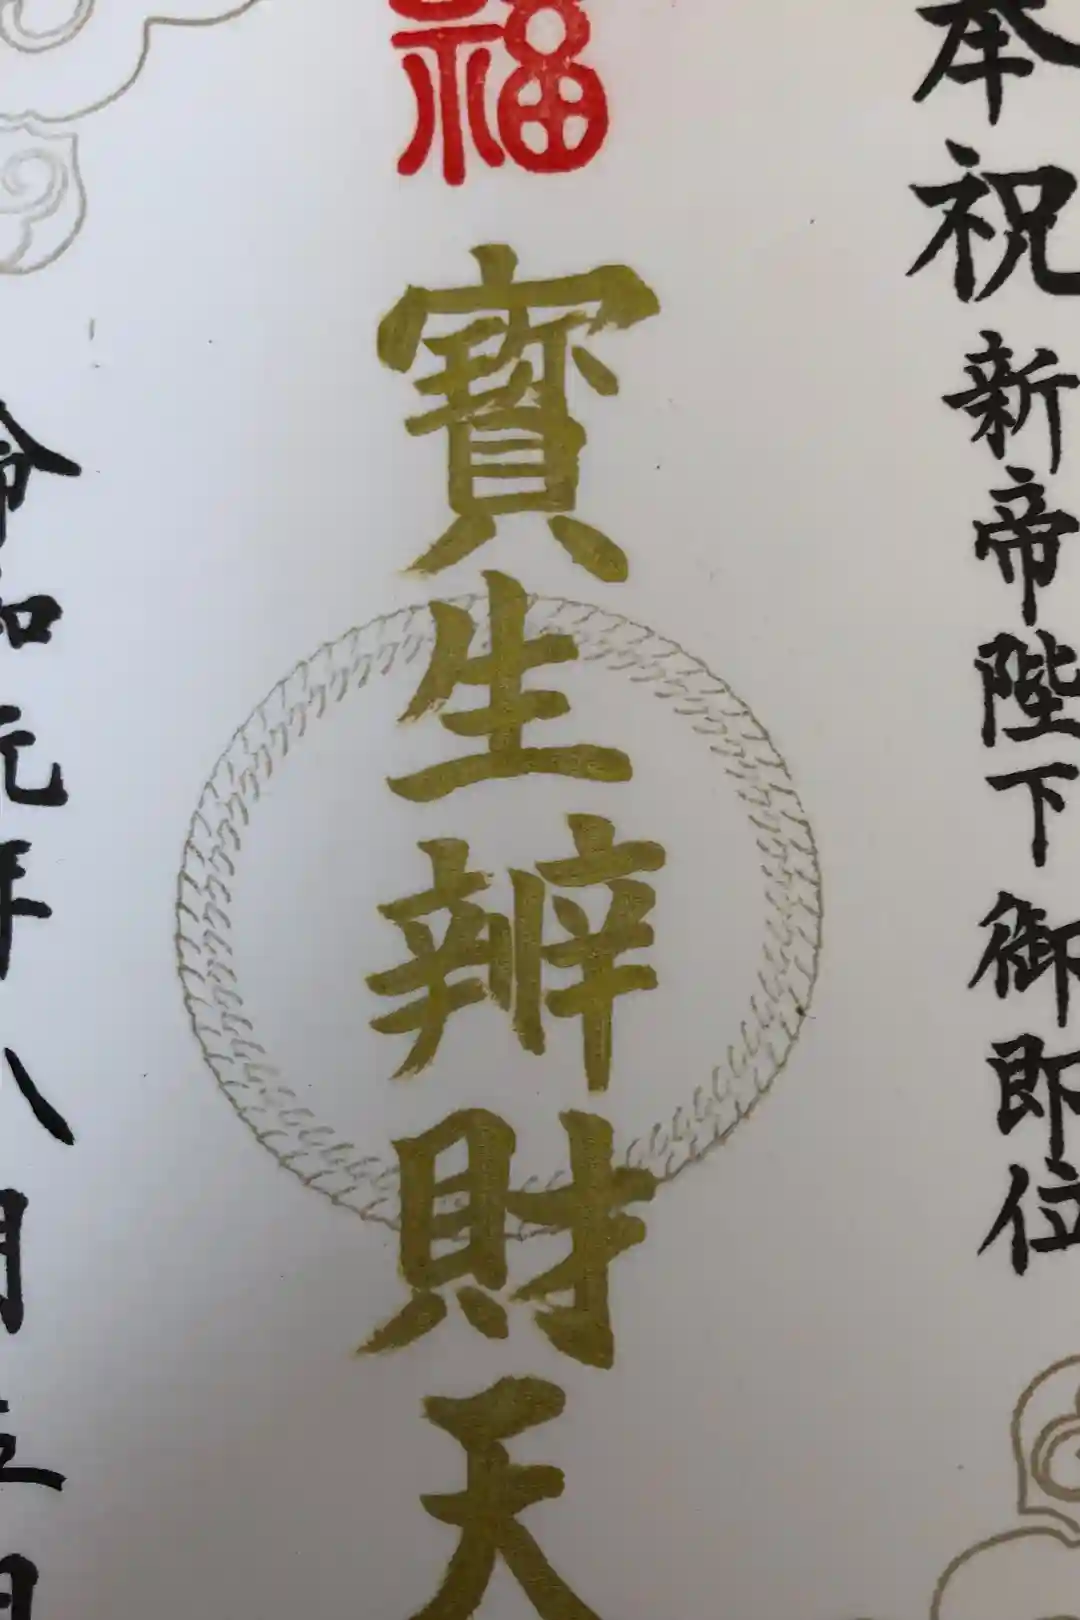 奉祝新帝陛下御即位
福
寶生辨財天
令和元年八月五日